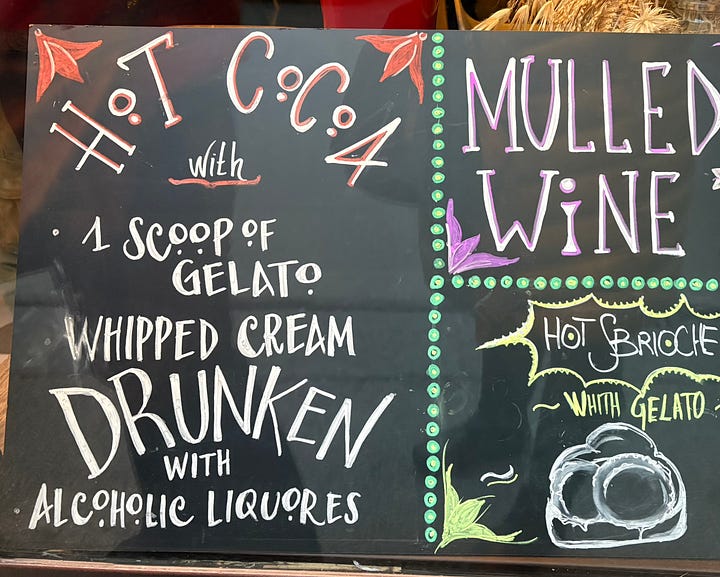 HoT CoCoA
with
1 SCOOP OF
GELATO
WHIPPED CREAM
DRUNKEN
WITH
ALCOHOLIC LIQUORES
MULLED
WiNE
HOT SBRIOCHE
~ WHITH GELATO ~